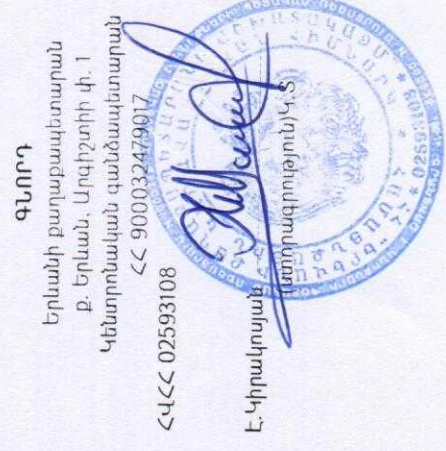 ԳՆՈՐԴ
Երևանի քաղաքապետարան
ք. Երևան, Արգիշտիի փ. 1
Կենտրոնական գանձապետարան
ՀՀ 900032479017
ՀՎՀՀ 02593108
Է.Կիրակոսյան
(ստորագրություն)Կ.Տ